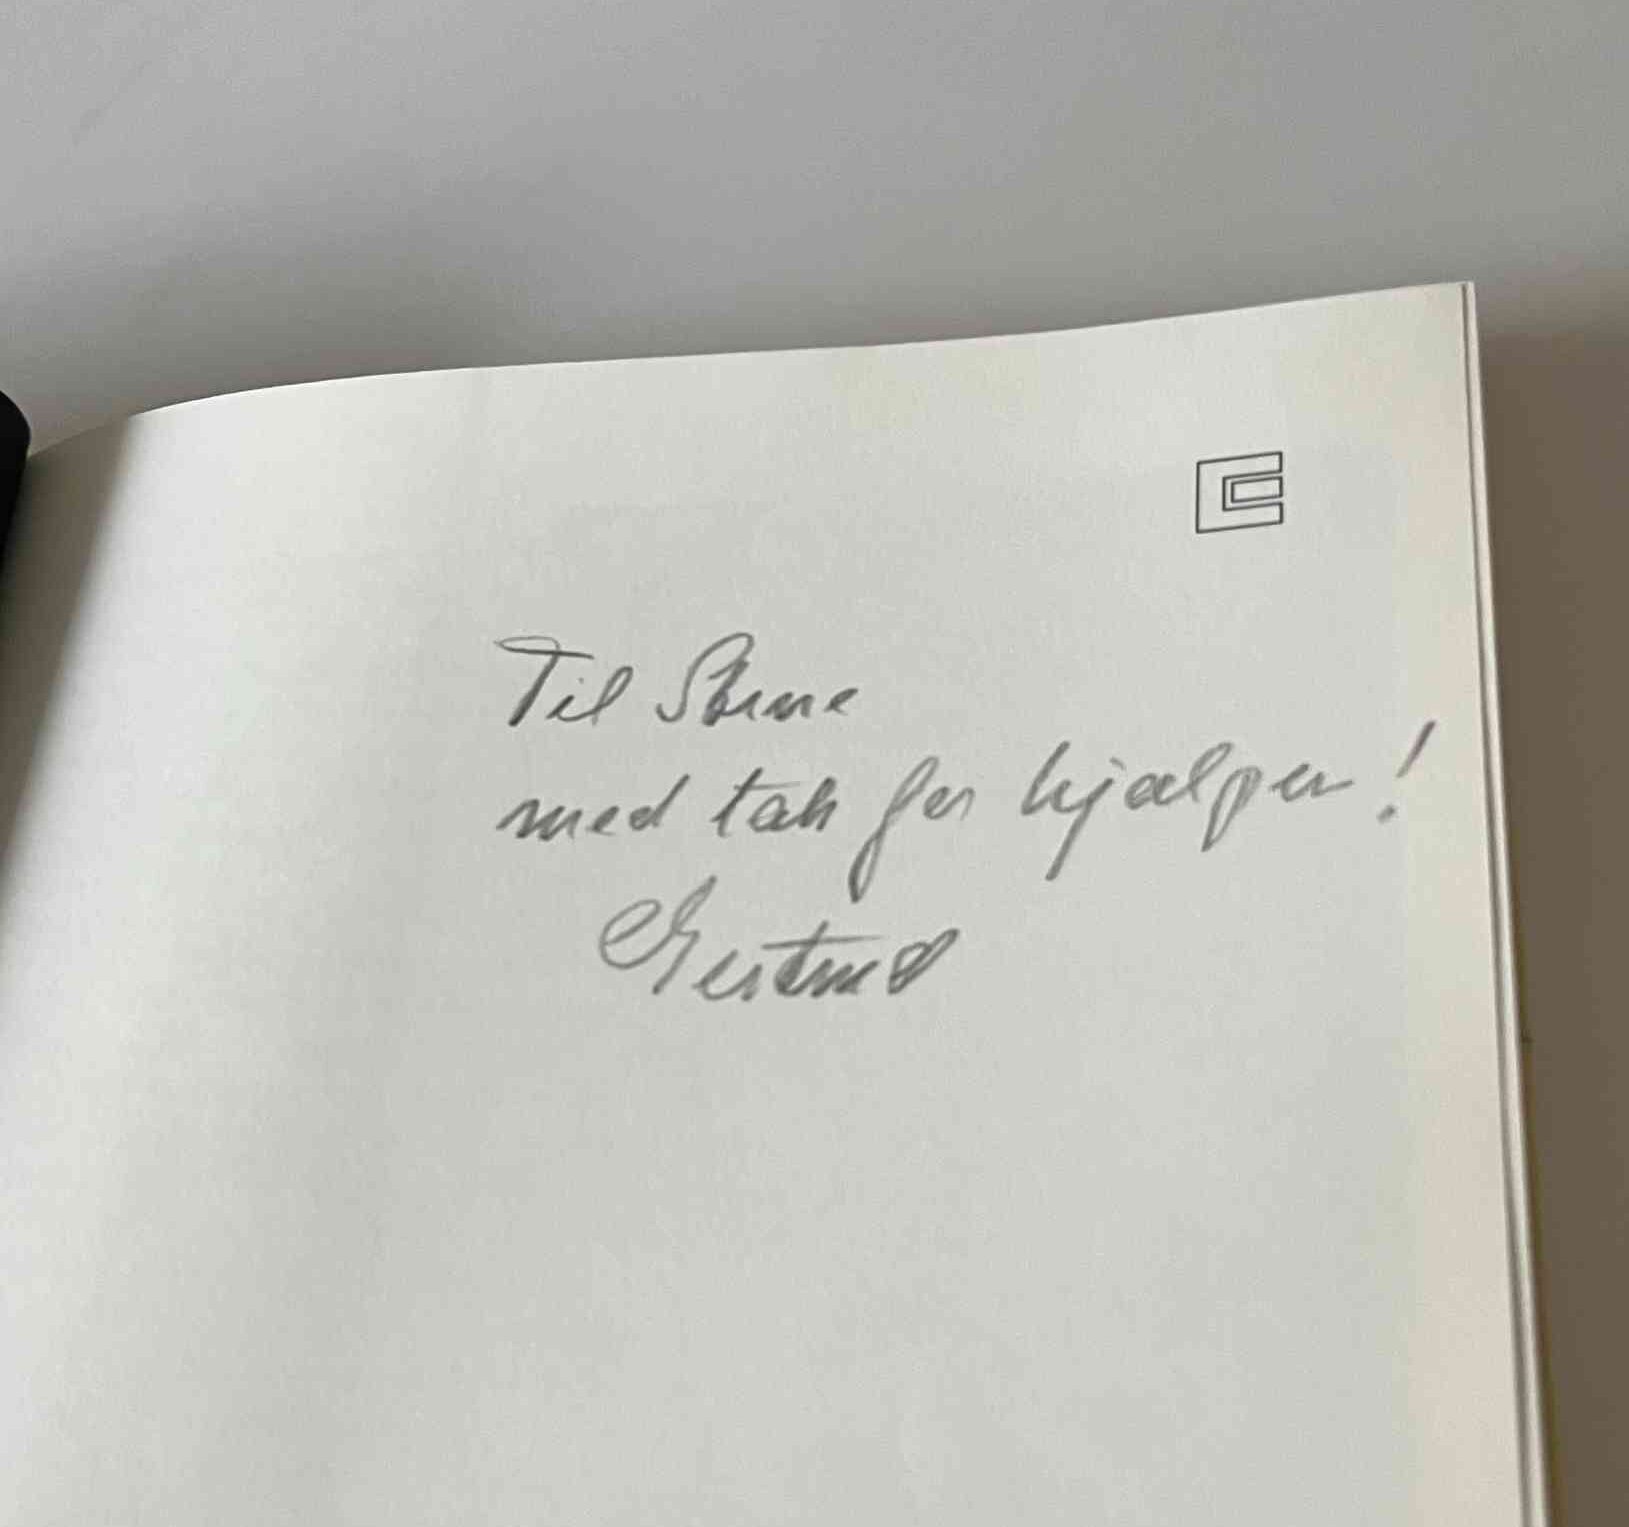 Til Stine
med tak for hjælpen!
Gertrud